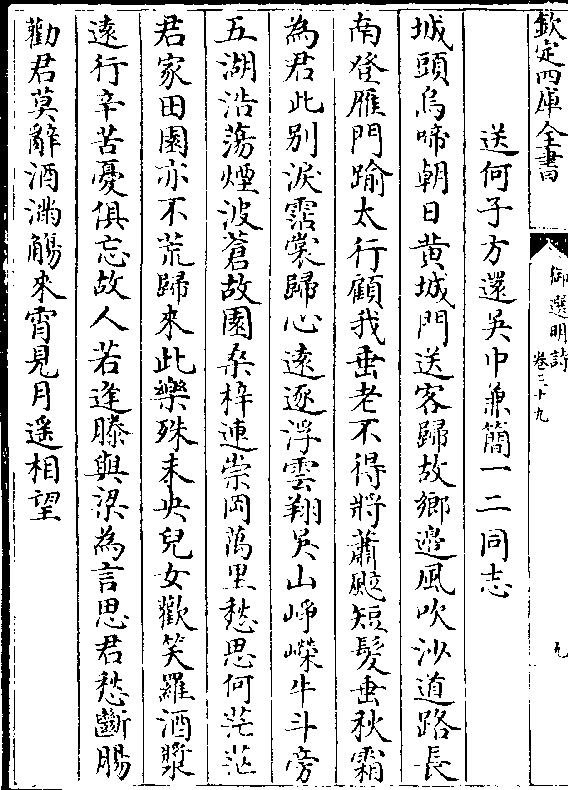 欽定四庫全書
御選明詩
卷三十九
九
送何子方還吳中兼簡一二同志
城頭烏啼朝日黄城門送客歸故鄉邉風吹沙道路長
南登雁門踰太行顧我垂老不得將蕭颼短髮垂秋霜
為君此别淚霑裳歸心遠逐浮雲翔吳山崢嶸牛斗旁
五湖浩蕩煙波蒼故園桑梓連崇岡萬里愁思何茫茫
君家田園亦不荒歸來此樂殊未央兒女歡笑羅酒漿
遠行辛苦憂俱忘故人若逢滕與梁為言思君愁斷腸
勸君莫辭酒滿觴來宵見月遥相望